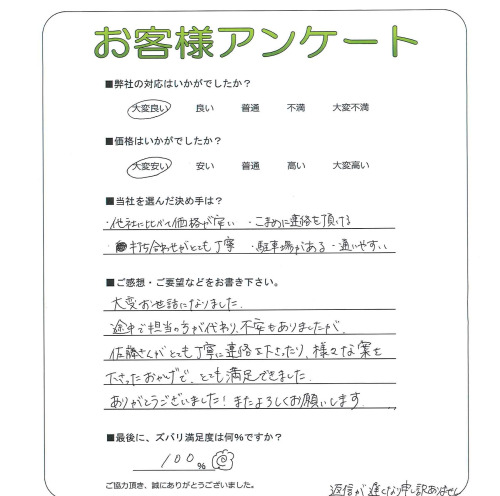 お客様アンケート
■弊社の対応はいかがでしたか？
大変良い 良い 普通 不満 大変不満
■価格はいかがでしたか？
大変安い 安い 普通 高い 大変高い
■当社を選んだ決め手は？
・他社に比べて価格が安い ・こまめに連絡を頂ける
・打ち合わせがとても丁寧 ・駐車場がある ・通いやすい
■ご感想・ご要望などをお書き下さい。
大変お世話になりました。
途中で担当の方が代わり、不安もありましたが、
佐藤さんがとても丁寧に連絡を下さったり、様々な案を
下さったおかげで、とても満足できました。
ありがとうございました！またよろしくお願いします。
■最後に、ズバリ満足度は何%ですか？
100%
ご協力頂き、誠にありがとうございました。
返信が遅くなり申し訳ありません